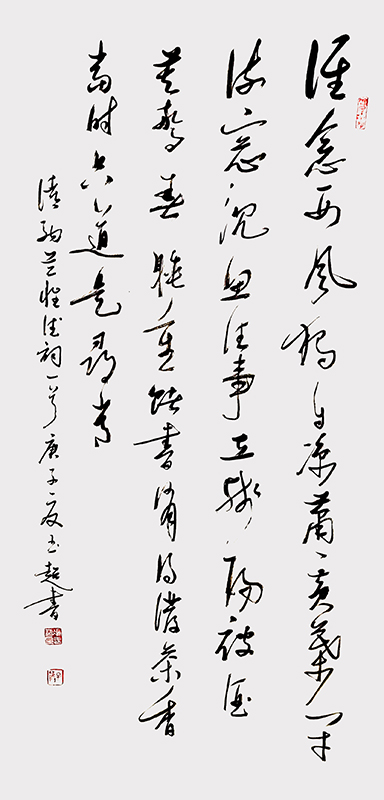 谁念西风独自凉蕭〻黄葉闭
疏窗沉思往事立残陽被酒
莫惊春睡重赌書消得泼茶香
当时只道是尋常
清纳兰性德词一首庚子夏玉超書